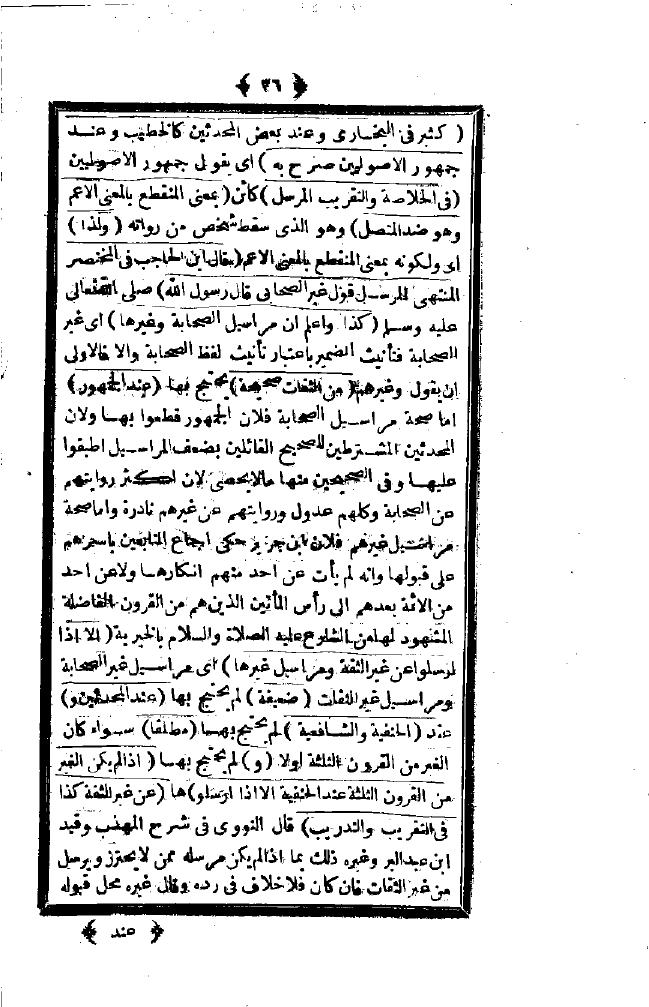 ﴿ ٣٦ ﴾
( كثير فى البخارى وعند بعض المحدثين كالخطيب وعند
جمهور الاصوليين صرح به ) اى بقول جمهور الاصوليين
( فى الخلاصة والتقريب المرسل ) كائن ( بمعنى المنقطع بالمعنى الاعم
وهو ضد المتصل ) وهو الذى سقط شخص من رواته ( ولذا )
اى ولكونه بمعنى المنقطع بالمعنى الاعم ( قال ابن الحاجب فى المختصر
المنتهى المرسل قول غير الصحابى قال رسول الله ) صلى الله تعالى
عليه وسلم ( كذا واعلم ان مراسيل الصحابة وغيرها ) اى غير
الصحابة فتأنيث الضمير باعتبار تأنيث لفظ الصحابة والا فالاولى
ان يقول وغيرهم ( من الثقات صحيحة ) يحتج بها ( عند الجمهور )
اما صحة مراسيل الصحابة فلان الجمهور قطعوا بها ولان
المحدثين المشترطين للصحيح القائلين بضعف المراسيل اطبقوا
عليها وفى الصحيحين منها مالا يحصى لان اكثر روايتهم
عن الصحابة وكلهم عدول وروايتهم عن غيرهم نادرة واما صحة
مراسيل غيرهم فلان ابن جرير حكى اجماع التابعين باسرهم
على قبولها وانه لم يأت عن احد منهم انكارها ولا عن احد
من الائمة بعدهم الى رأس المأتين الذين هم من القرون الفاضلة
المشهود لها من الشارع عليه الصلاة والسلام بالخيرية ( الا اذا
ارسلوا عن غير الثقة ومراسيل غيرها ) اى مراسيل غير الصحابة
ومراسيل غير الثقات ( ضعيفة ) لم يحتج بها ( عند المحدثين و )
عند ( الحنفية والشافعية ) لم يحتج بها ( مطلقا ) سواء كان
الغير من القرون الثلثة اولا ( و ) لم يحتج بها ( اذا لم يكن الغير
من القرون الثلثة عند الحنفية الا اذا ارسلو ) ها ( عن غير الثقة كذا
فى التقريب والتدريب ) قال النووى فى شرح المهذب وقيد
ابن عبد البر وغيره ذلك بما اذا لم يكن مرسله ممن لا يحترز ويرسل
من غير الثقات فان كان فلا خلاف فى رده وقال غيره محل قبوله
﴿ عند ﴾